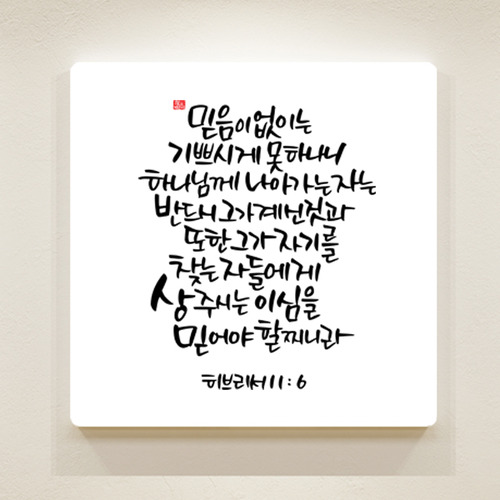 믿음이없이는
기쁘시게 못하나니
하나님께 나아가는자는
반드시 그가계신것과
또한그가 자기를
찾는자들에게
상주시는 이심을
믿어야 할찌니라
히브리서 11 : 6